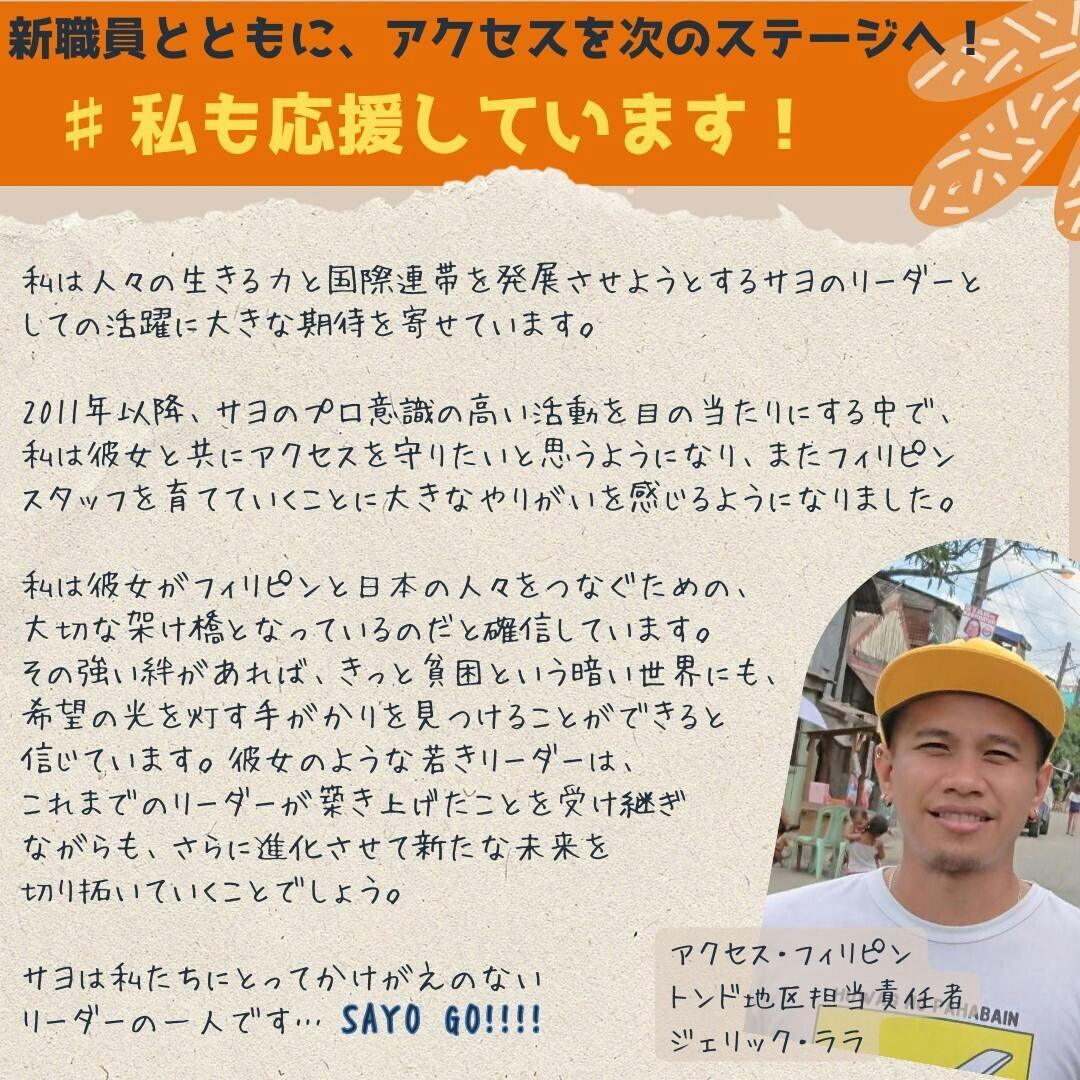 新職員とともに、アクセスを次のステージへ！
＃私も応援しています！
私は人々の生きる力と国際連帯を発展させようとするサヨのリーダーと
しての活躍に大きな期待を寄せています。
2011年以降、サヨのプロ意識の高い活動を目の当たりにする中で、
私は彼女と共にアクセスを守りたいと思うようになり、またフィリピン
スタッフを育てていくことに大きなやりがいを感じるようになりました。
私は彼女がフィリピンと日本の人々をつなぐための、
大切な架け橋となっているのだと確信しています。
その強い絆があれば、きっと貧困という暗い世界にも、
希望の光を灯す手がかりを見つけることができると
信じています。彼女のような若きリーダーは、
これまでのリーダーが築き上げたことを受け継ぎ
ながらも、さらに進化させて新たな未来を
切り拓いていくことでしょう。
サヨは私たちにとってかけがえのない
リーダーの一人です… SAYO GO!!!!
アクセス・フィリピン
トンド地区担当責任者
ジェリック・ララ